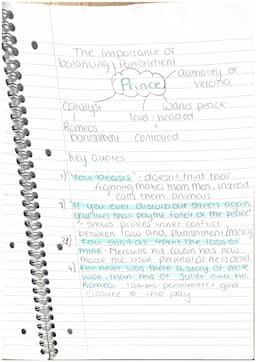 The importance of
balancing punishment
authority of
verona
Prince
Catalyst
wants peace
level headed
Romeos
banishment
controlled
Key quotes
1) "You beasts" - doesn't think their
fighting makes them men, instead
calls them animals
2) "If you ever disturb our streets again
your lives shall pay the forfeit of the peace"
- shows princes inner conflict
between law and punishment/mercy
3)
of
mine - Mercutio his cousin has now
made the issue personal as he is dead
4) For never was there a story of more
woe, than this of Juliet and her
Romeo. Iambic pentameter give
closure to the play